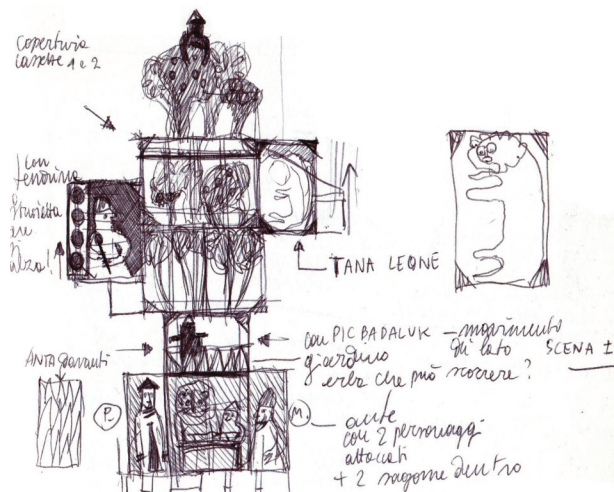 copertura
cassette 1 e 2
con
tendina
che si
alza!
TANA LEONE
con PIC BADALUK – movimento
giardino di lato SCENA I
erba che può scorrere?
ANTA davanti
P.
M.
ante
con 2 personaggi
attaccati
+ 2 sagome dentro